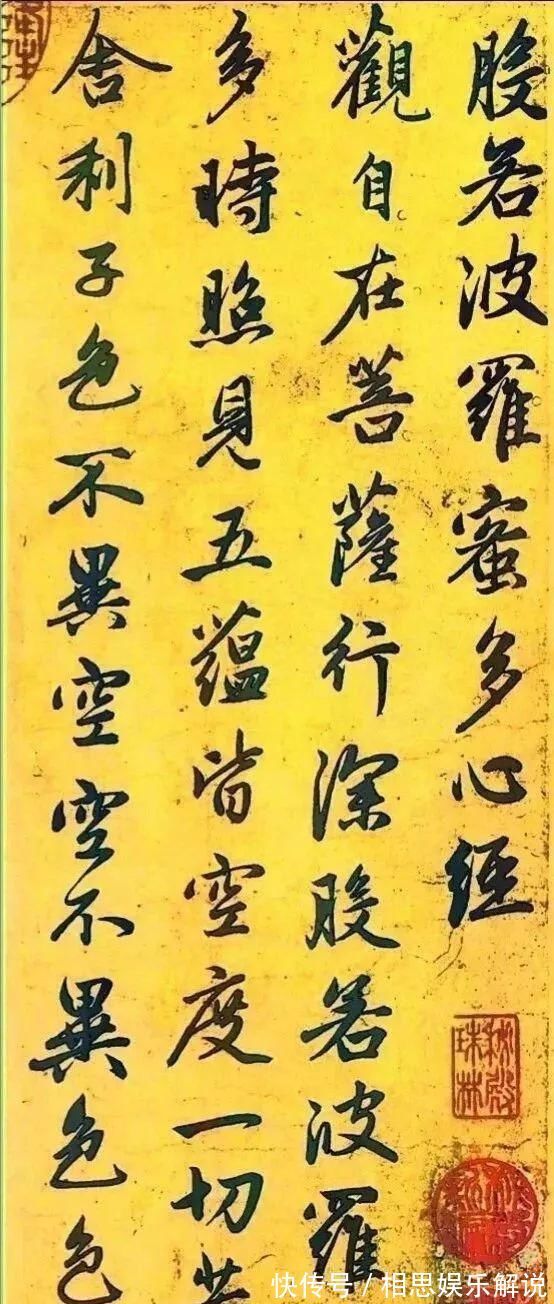 般若波羅蜜多心經
觀自在菩薩行深般若波羅
多時照見五蘊皆空度一切
舍利子色不異空空不異色色
秘殿珠林
快传号/相思娱乐解说